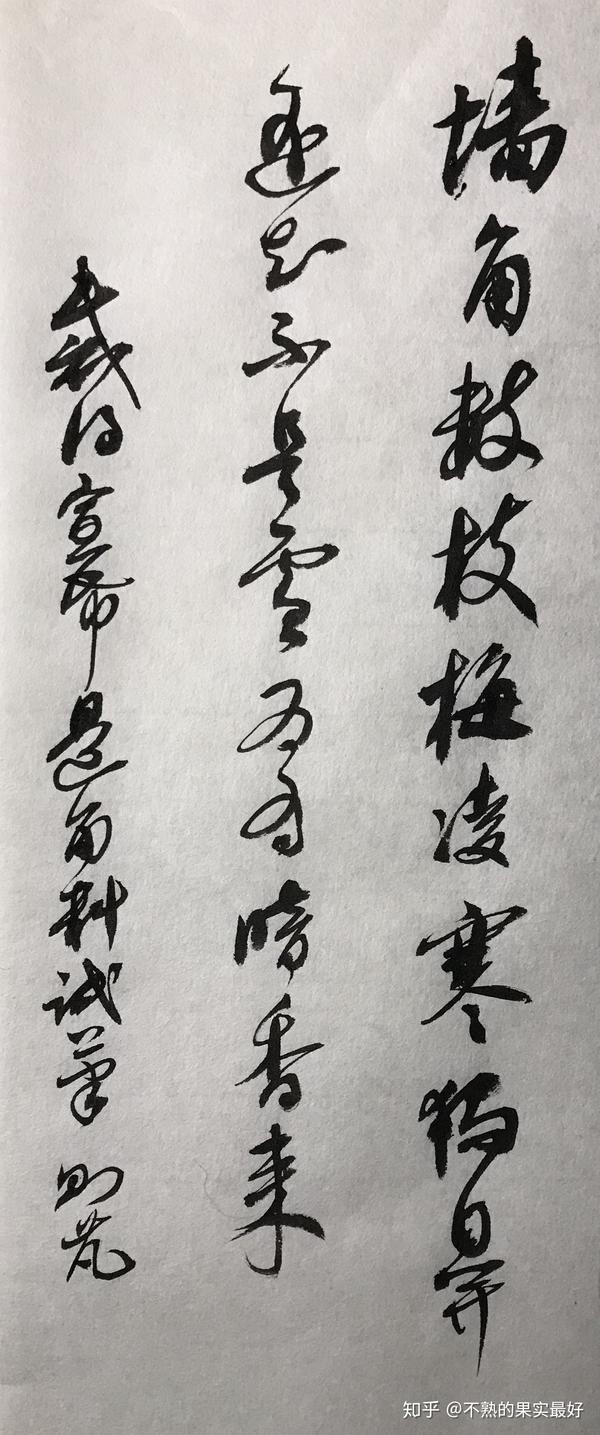 墙角数枝梅凌寒独自开
遥知不是雪为有暗香来
裁得宣纸边角料试笔 则芃
知乎 @不熟的果实最好